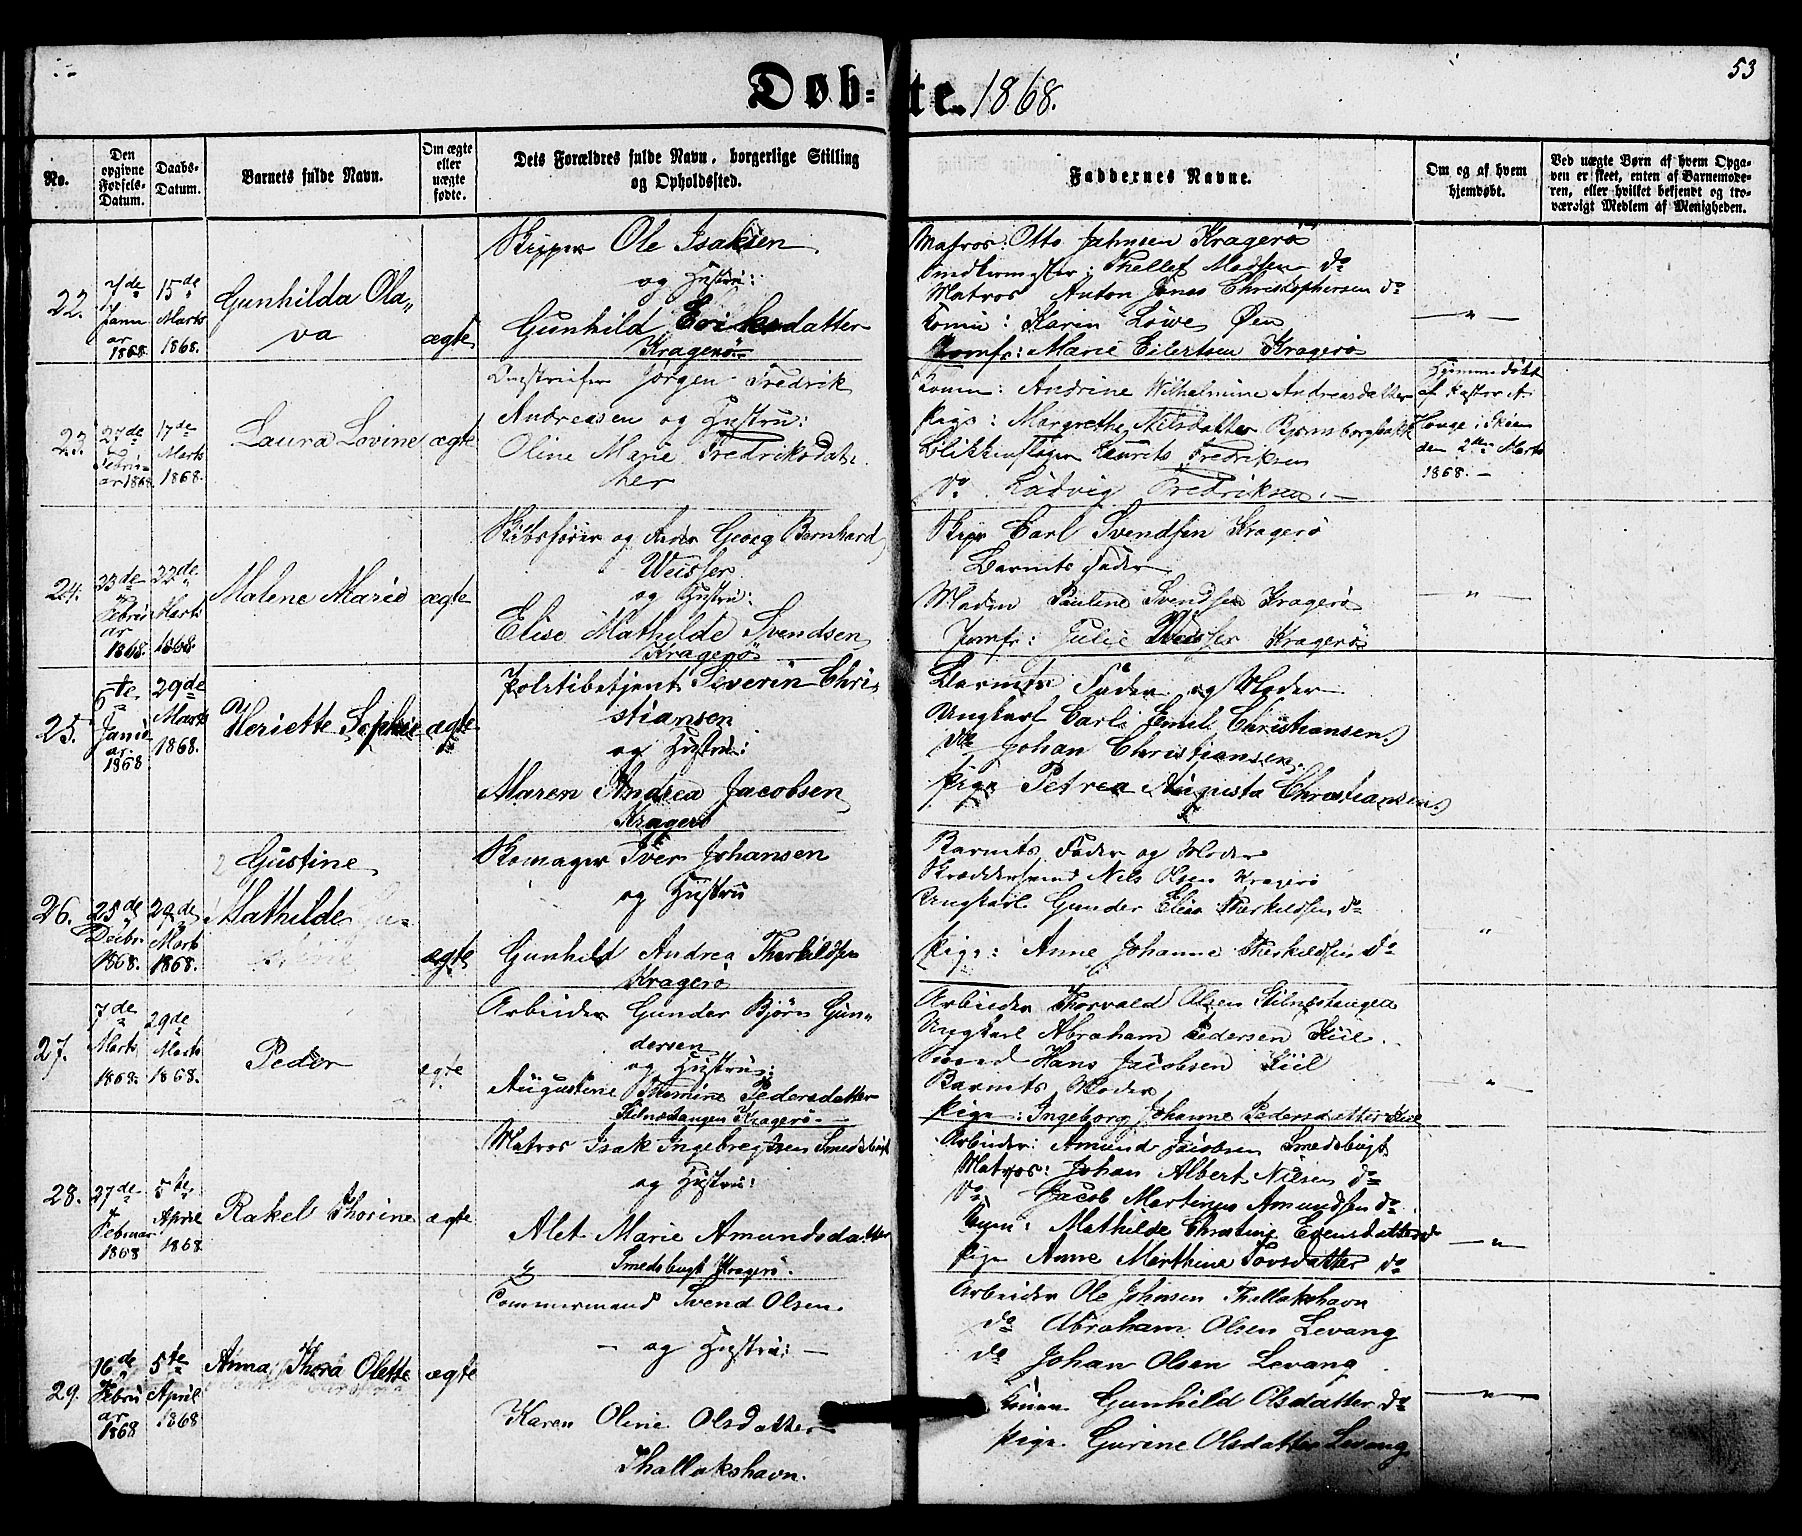 53
Døb-te. 1868.
No.
Den opgivne Fødsels-Datum.
Daabs-Datum.
Barnets fulde Navn.
Om ægte eller uægte fødte.
Dets Forældres fulde Navn, borgerlige Stilling og Opholdssted.
Faddernes Navne.
Om og af hvem hjemdøbt.
Ved uægte Børn af hvem Opga-
ven er skeet, enten af Barnemode-
ren, eller hvilket bekjendt og tro-
værdigt Medlem af Menigheden.
22.
7de Januar 1868.
15de Marts 1868.
Gunhilda Ola-
va
ægte
Skipper Ole Isaksen
og Hustru:
Gunhild Eriksdatter
Kragerø
Matros: Otto Jahnsen Kragerø
Thellef Madsen do
Matros Anton Jonas Christophersen do
Kone: Karin Løwe Øen
Jomfr: Marie Eilertsen Kragerø
— " —
23.
27de Februar 1868.
17de Marts 1868.
Laura Lovine
ægte
Jørgen Fredrik
Andreasen og Hustru:
Oline Marie Fredriksdat-
ter
Konen: Andrine Wilhelmine Andreasdatter
Pige: Margrethe Nilsdatter
Blikkenslager Laurits Fredriksen
do Ludvig Fredriksen. —
Hjemmedøbt
af Pastor
Houge i Skien
den 2den Marts
1868. —
24.
23de Februar 1868.
22de Marts 1868.
Malene Marie
ægte
Skibsfører og Georg Bernhard
Weisser
og Hustru:
Elise Mathilde Svendsen
Kragerø
Skipr Carl Svendsen Kragerø
Barnets Fader
Madm Pauline Svendsen Kragerø
Jomfr: Julie Weisser Kragerø
— " —
25.
6te Januar 1868
29de Marts 1868.
Heriette Sophie
ægte
Politibetjent Severin Chri-
stiansen
og Hustru:
Maren Andrea Jacobsen
Kragerø
Barnets Fader og Moder
Ungkarl Carl Emil Christiansen
do Johan Christiansen
Pige Petrea Augusta Christiansen
26.
25de Decbr 1868.
29de Marts 1868.
Gustine
Mathilde
ægte
Skomager Iver Johansen
og Hustru
Gunhild Andrea Therkildsen
Kragerø
Barnets Fader og Moder
Skræddersvend Nils Olsen Kragerø
Ungkarl Gunder Elias Therkildsen do
Pige: Anne Johanne Therkildsen do
"
27.
7de Marts 1868.
29de Marts 1868.
Peder
ægte
Arbeider Gunder Bjørn Gun-
dersen
og Hustru:
Augustine Thomine Pedersdatter
Stilnestangen Kragerø.
Arbeider Thorvald Olsen Stilnestangen
Ungkarl Abraham Pedersen Kiil
Smed Hans Jacobsen Kiil
Barnets Moder
Pige: Ingeborg Johanne Pedersdatter Kiil
"
28.
27de Februar 1868
5te April 1868
Rakel Thorine
ægte
Matros Isak Ingebregtsen Smedsbugt
og Hustru:
Alet Marie Amundsdatter
Smedsbugt Kragerø.
Arbeider: Amund Jacobsen Smedsbugt
Matros: Johan Albert Nilsen do
do Jacob Martinus Amundsen do
Konen: Mathilde Christine Evensdatter do
Pige Anne Marthine Tovsdatter do
— " —
29.
16de Februar 1868
5te April 1868
Anna Thora Olette
ægte
Tømmermand Svend Olsen
— og Hustru: —
Karen Oline Olsdatter
Thallakshavn.
Arbeider Ole Johnsen Thallakshavn
do Abraham Olsen Levang
do Johan Olsen Levang
Konen Gunhild Olsdatter do
Pige Gurine Olsdatter Levang
— " —